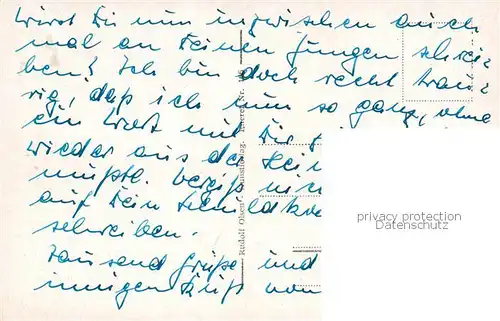 wirst Du nun inzwischen auch
mal an Deinen Jungen schrei-
ben? Ich bin doch recht trau-
rig, daß ich nun so ganz, ohne
ein Wort mit Dir
wieder aus der Hei
mußte. Vergiß nic
auf Dein
schreiben.
Tausend Grüße und
innigen Kuß von
Rudolf Olsen Kunstverlag,
privacy protection
Datenschutz